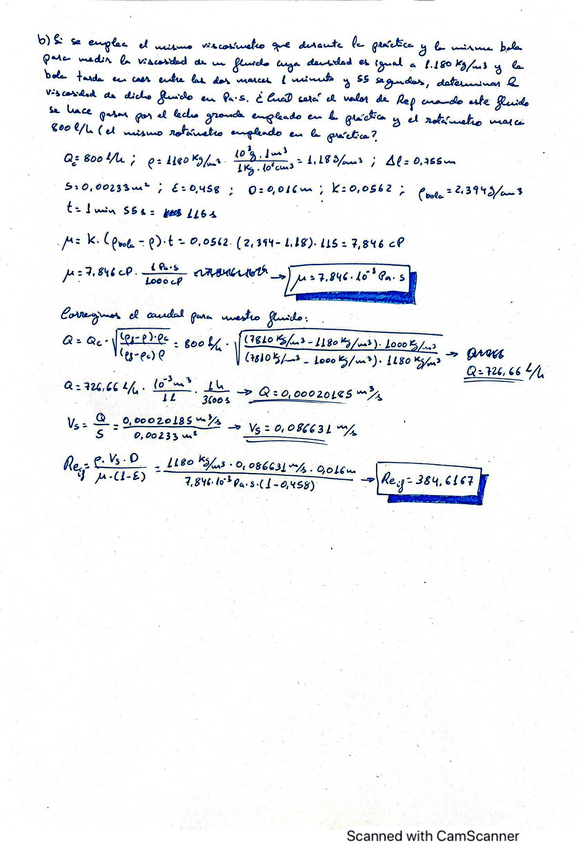 b) Si se emplea el mismo viscosímetro que durante la práctica y la misma bola
para medir la viscosidad de un fluido cuya densidad es igual a 1.180 Kg/m3 y la
bola tarda en caer entre las dos marcas 1 minuto y 55 segundos, determinar la
viscosidad de dicho fluido en Pa·s. ¿Cuál será el valor de Rep cuando este fluido
se hace pasar por el lecho grande empleado en la práctica y el rotámetro marca
800 l/h (el mismo rotámetro empleado en la práctica?
Qc = 800 l/h ; ρ = 1180 Kg/m³ · 10³g · 1m³ / 1Kg · 10⁶cm³ = 1,18 g/cm³ ; Δl = 0,755m
S = 0,00233 m² ; ε = 0,458 ; D = 0,016m ; K = 0,0562 ; ρbola = 2,394 g/cm3
t = 1 min 55 s = 115 s
μ = K · (ρbola - ρ) · t = 0,0562 · (2,394 - 1,18) · 115 = 7,846 cP
μ = 7,846 cP · 1 Pa·s / 1000 cP → μ = 7,846 · 10⁻³ Pa·s
Corregimos el caudal para nuestro fluido:
Q = Qc · √((ρf-ρ)·ρc / (ρf-ρc)ρ) = 800 l/h · √((7810 Kg/m3 - 1180 Kg/m3) · 1000 Kg/m3 / (7810 Kg/m3 - 1000 Kg/m3) · 1180 Kg/m3) → Q = 726,66 l/h
Q = 726,66 l/h · 10⁻³ m³ / 1l · 1h / 3600s → Q = 0,00020185 m³/s
Vs = Q / S = 0,00020185 m³/s / 0,00233 m² → Vs = 0,086631 m/s
= ρ · Vs · D / μ · (1-ε) = 1180 Kg/m3 · 0,086631 m/s · 0,016m / 7,846·10⁻³ Pa·s · (1-0,458) → = 384,6167
Scanned with CamScanner